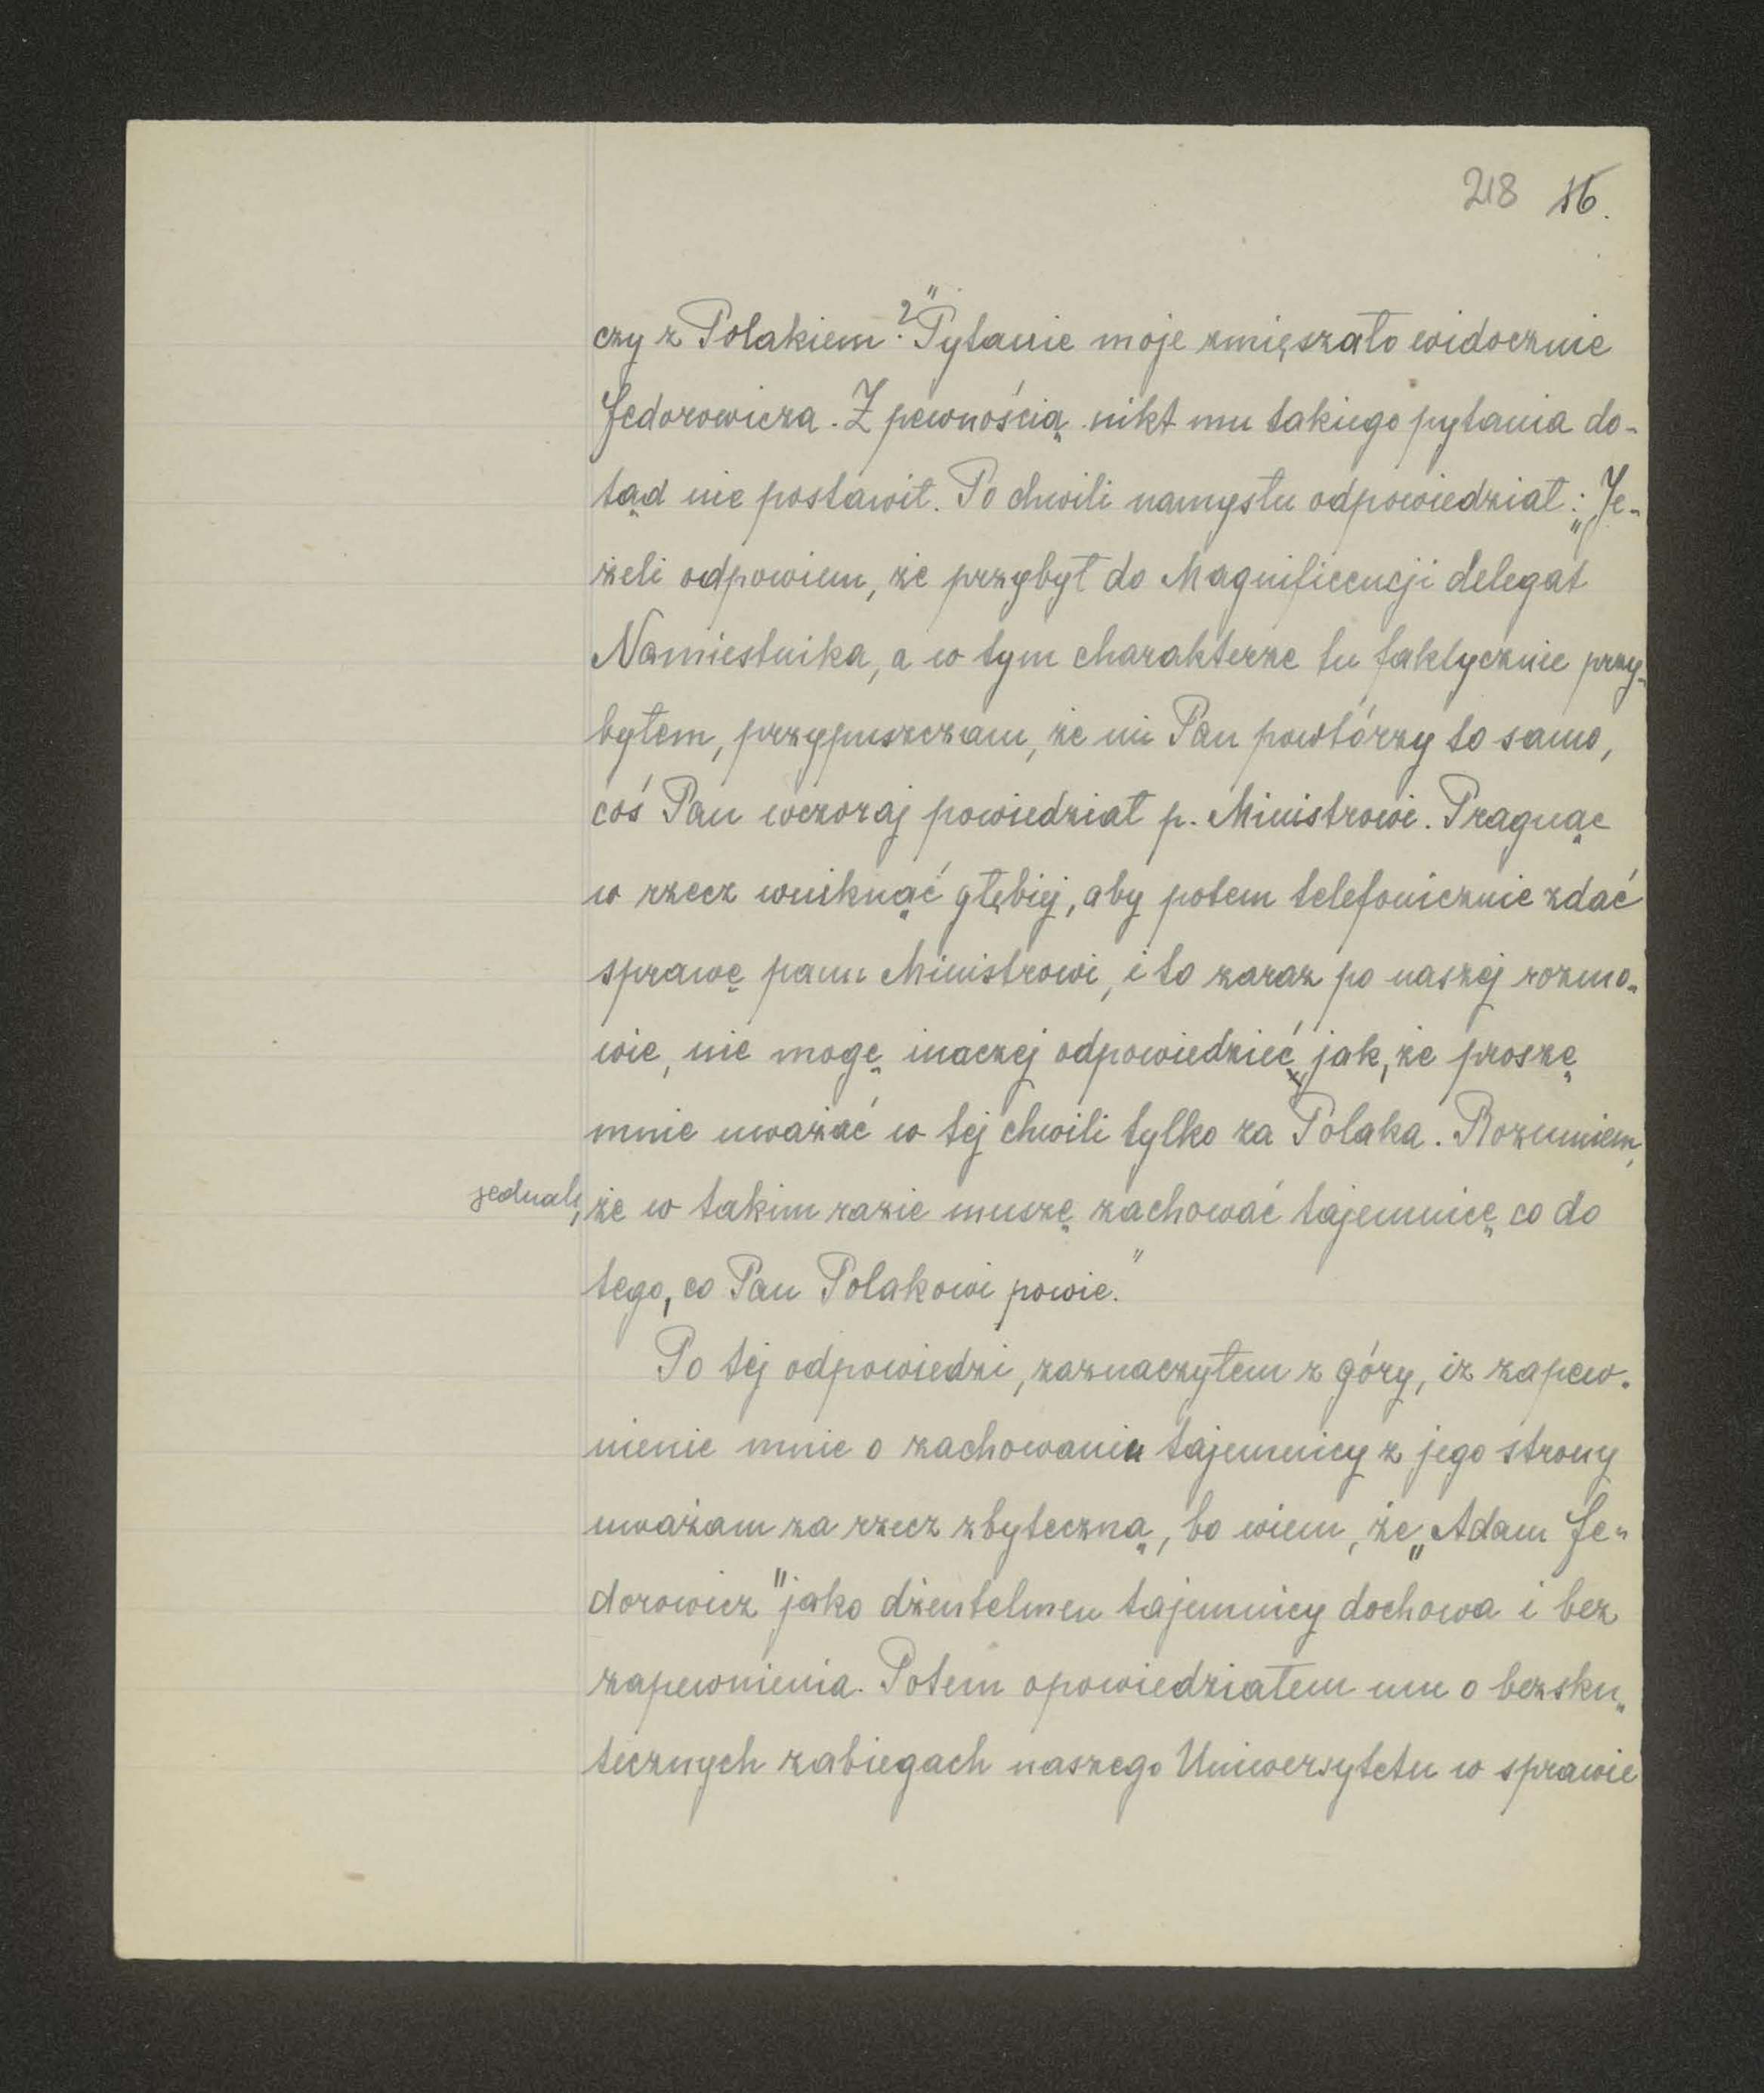 218 16.
czy z Polakiem?" Pytanie moje zmięszało widocznie
Fedorowicza. Z pewnością nikt mu takiego pytania do-
tąd nie postawił. Po chwili namysłu odpowiedział: „Je-
żeli odpowiem, że przybył do Magnificencji delegat
Namiestnika, a w tym charakterze tu faktycznie przy-
byłem, przypuszczam, że mi Pan powtórzy to samo,
coś Pan wczoraj powiedział p. Ministrowi. Pragnąc
w rzecz wniknąć głębiej, aby potem telefonicznie zdać
sprawę panu Ministrowi, i to zaraz po naszej rozmo-
wie, nie mogę inaczej odpowiedzieć jak, że proszę
mnie uważać w tej chwili tylko za Polaka. Rozumiem,
jednak, że w takim razie muszę zachować tajemnicę co do
tego, co Pan Polakowi powie."
Po tej odpowiedzi, zaznaczyłem z góry, iż zapew-
nienie mnie o zachowaniu tajemnicy z jego strony
uważam za rzecz zbyteczną, bo wiem, że „Adam Fe-
dorowicz" jako dżentelmen tajemnicy dochowa i bez
zapewnienia. Potem opowiedziałem mu o bezsku-
tecznych zabiegach naszego Uniwersytetu w sprawie